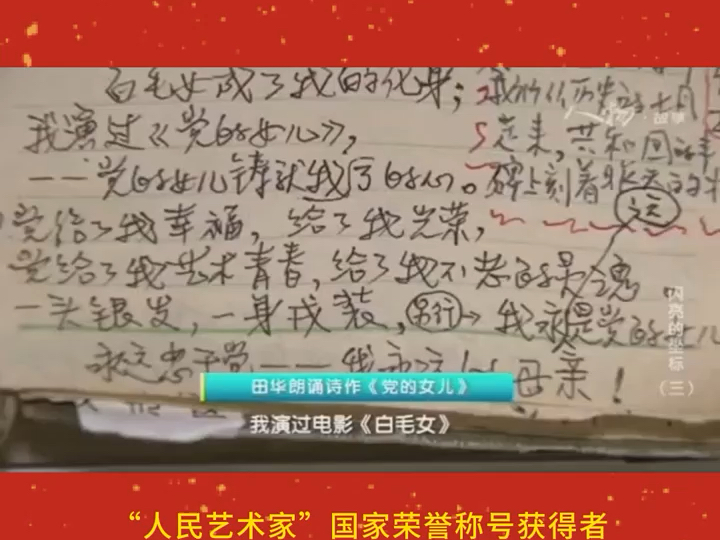 白毛女成了我的化身；
我演过《党的女儿》，
一一党的女儿铸就我的
党给了我幸福，给了我光荣，
党给了我艺术青春，给了我不老的灵魂
一头银发，一身戎装，另行→我永是党的女儿
永远忠于党一一我
母亲！
永远
走来，共和国的丰
碑上刻着
人物·故事
闪亮的坐标
（三）
田华朗诵诗作《党的女儿》
我演过电影《白毛女》
“人民艺术家”国家荣誉称号获得者